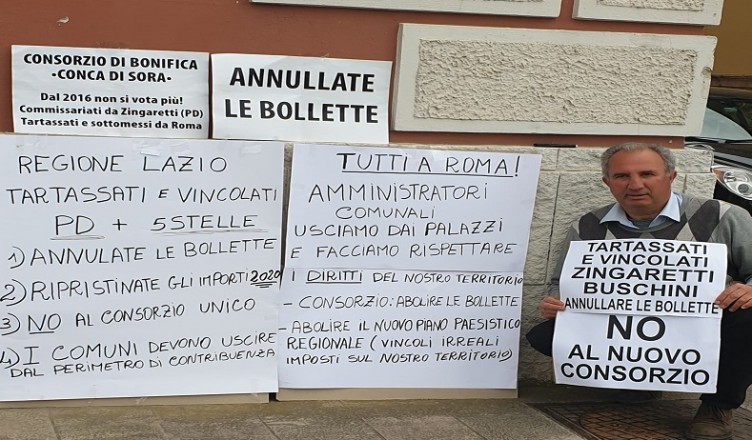 CONSORZIO DI BONIFICA
-CONCA DI SORA-
Dal 2016 non si vota più!
Commissariati da Zingaretti (PD)
Tartassati e sottomessi da Roma
ANNULLATE
LE BOLLETTE
REGIONE LAZIO
TARTASSATI E VINCOLATI
PD + 5STELLE
1) ANNULATE LE BOLLETTE
2) RIPRISTINATE GLI IMPORTI 2020
3) NO AL CONSORZIO UNICO
4) I COMUNI DEVONO USCIRE
DAL PERIMETRO DI CONTRIBUENZA
TUTTI A ROMA!
AMMINISTRATORI
COMUNALI
USCIAMO DAI PALAZZI
E FACCIAMO RISPETTARE
I DIRITTI DEL NOSTRO TERRITORIO
- CONSORZIO: ABOLIRE LE BOLLETTE
- ABOLIRE IL NUOVO PIANO PAESISTICO
REGIONALE (VINCOLI IRREALI
IMPOSTI SUL NOSTRO TERRITORIO)
TARTASSATI
E VINCOLATI
ZINGARETTI
BUSCHINI
ANNULLARE LE BOLLETTE
NO
AL NUOVO
CONSORZIO